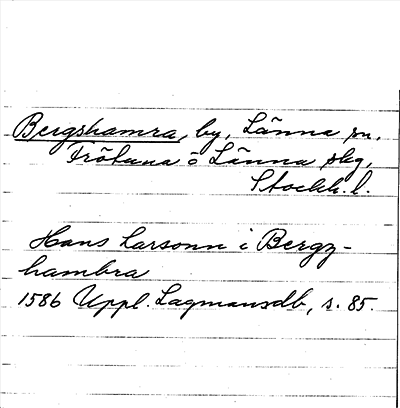 Bergshamra, by, Länna sn,
Frötuna o Länna skg,
Stockh. l.
Hans Larsonn i Bergz-
hambra
1586 Uppl. Lagmansdb, s. 85.